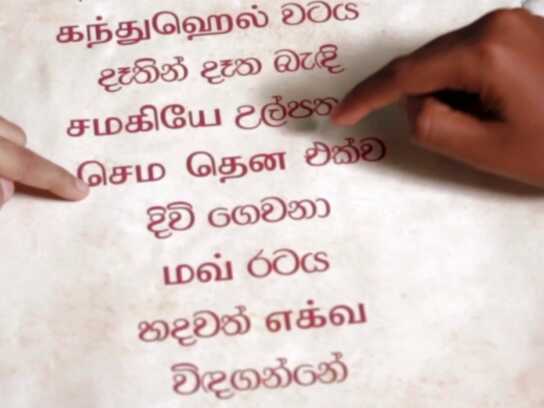 கந்துஹெல் වටය
දෑතින් දෑත බැඳි
சமகியே උල්පත
செம தென එක්ව
දිවි ගෙවනා
மவ் රටය
හදවත් எக்வ
විඳගන්නේ